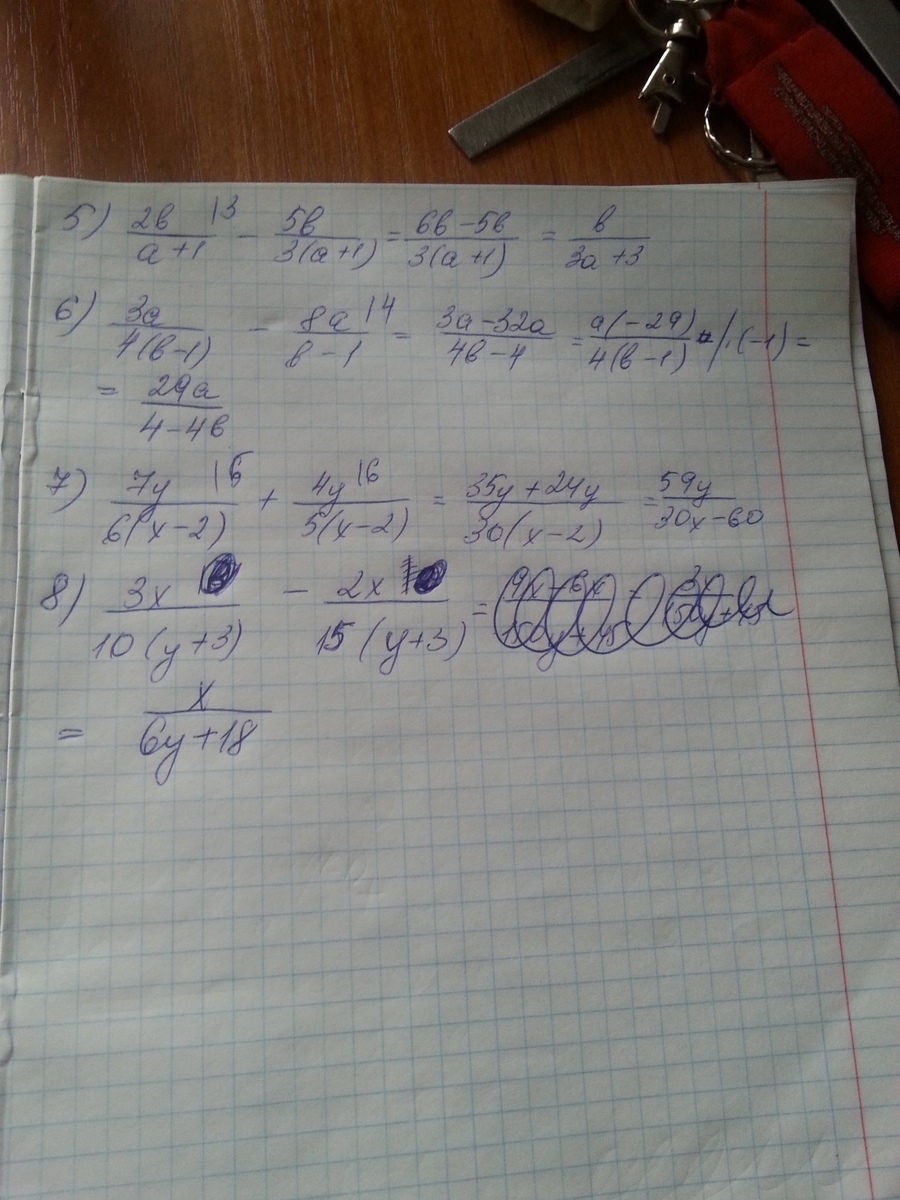 5) 2в/(a+1) |3 − 5в/3(a+1) = (6в−5в)/3(a+1) = в/(3a+3)
6) 3a/4(в−1) − 8a/(в−1) |4 = (3a−32a)/(4в−4) = a(−29)/4(в−1) /·(−1) =
= 29a/(4−4в)
7) 7y/6(x−2) |5 + 4y/5(x−2) |6 = (35y+24y)/30(x−2) = 59y/(30x−60)
8) 3x/10(y+3) − 2x/15(y+3) =
= x/(6y+18)